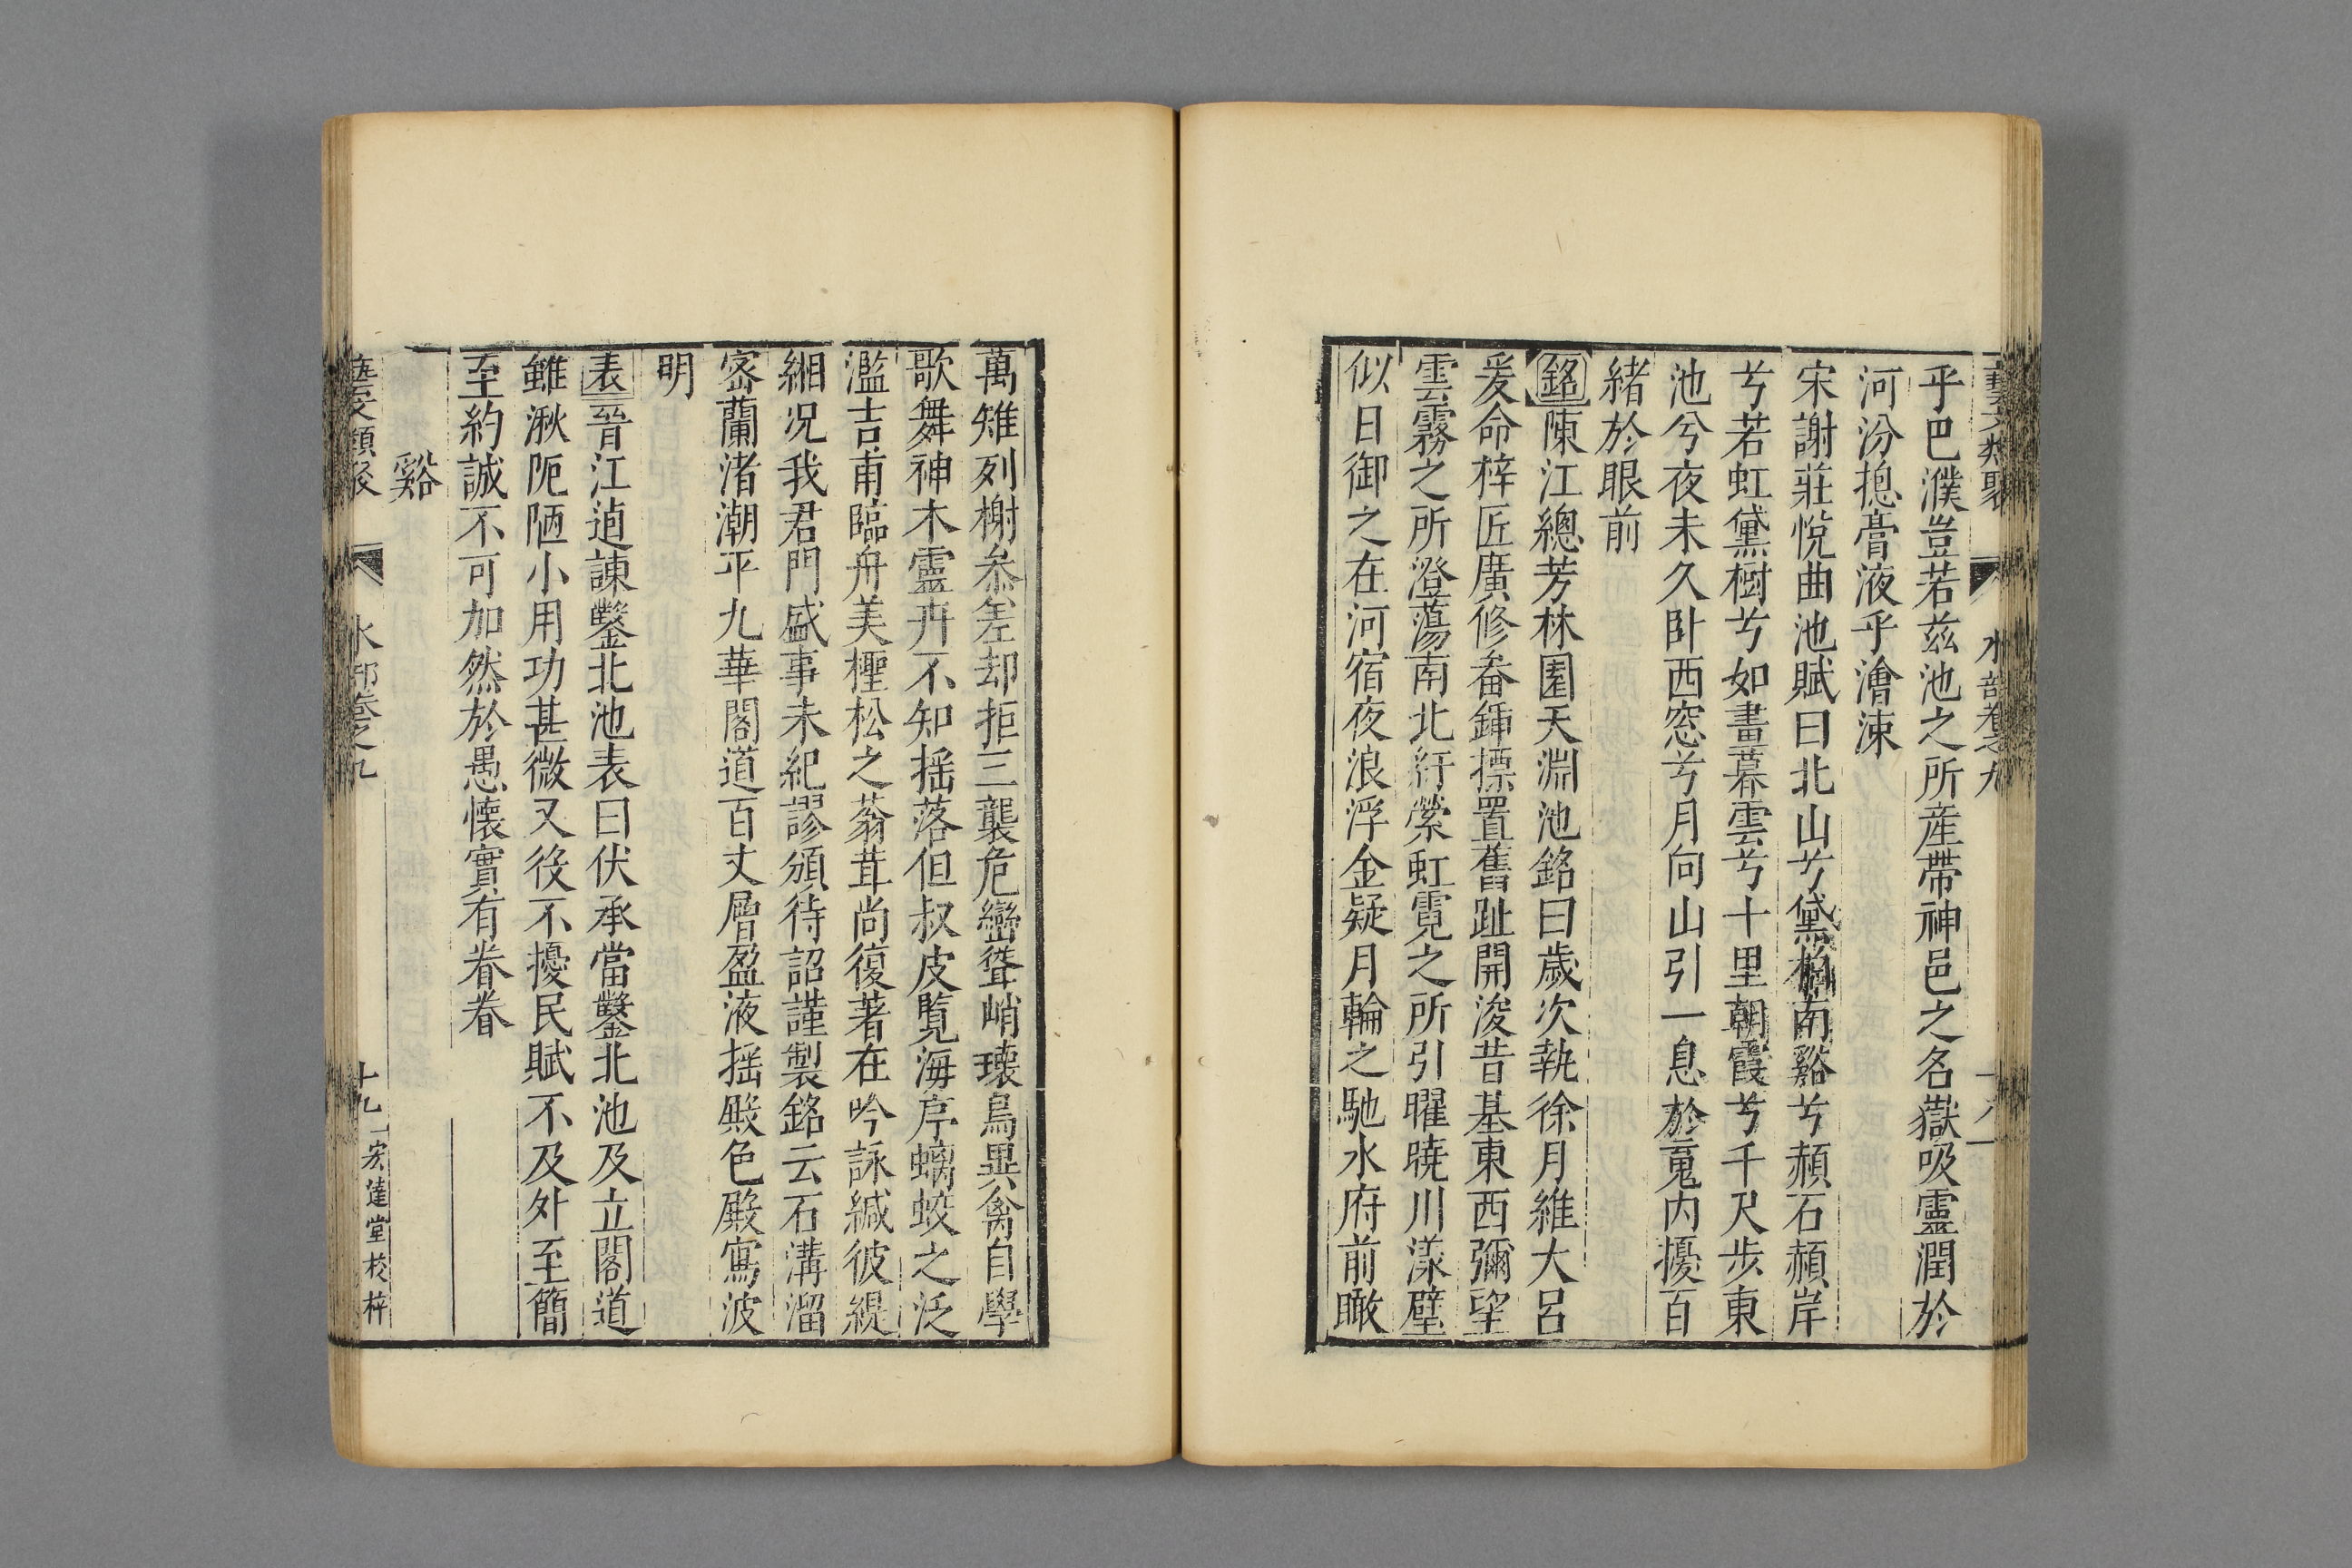 藝文類聚 水部卷之九 十八
乎巴濮豈若茲池之所産帶神邑之名嶽吸靈潤於
河汾揔膏液乎澮涑
宋謝莊悅曲池賦曰北山兮黛柏南谿兮赬石赬岸
兮若虹黛樹兮如畫暮雲兮十里朝霞兮千尺步東
池兮夜未久卧西窓兮月向山引一息於䰟内擾百
緒於眼前
銘陳江總芳林園天淵池銘曰歲次執徐月維大呂
爰命梓匠廣修畚鍤摽置舊趾開浚昔基東西彌望
雲霧之所澄蕩南北紆縈虹霓之所引曜曉川漾璧
似日御之在河宿夜浪浮金疑月輪之馳水府前瞰
萬雉列榭叅差却拒三襲危巒聳峭瓌鳥異禽自學
歌舞神木靈卉不知揺落但叔皮覧海序螭蛟之泛
濫吉甫臨舟美檉松之蓊茸尚復著在吟詠緘彼緹
緗况我君門盛事未紀謬頒待詔謹製銘云石溝溜
宻蘭渚潮平九華閣道百丈層盈液揺殿色殿寫波
明
表晉江逌諫鑿北池表曰伏承當鑿北池及立閣道
雖湫阨陋小用功甚微又役不擾民賦不及外至簡
至約誠不可加然於愚懐實有眷眷
谿
藝文類聚 水部卷之九 十九 宏達堂校梓